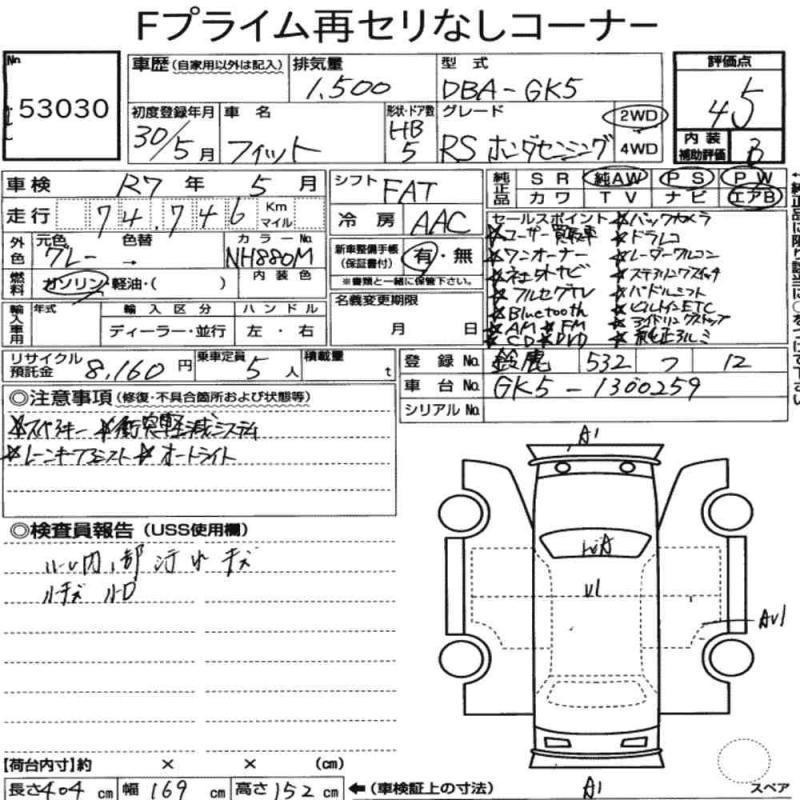 Fプライム再セリなしコーナー
No
53030
車歴 (自家用以外は記入)
排気量
1.500
型式
DBA-GK5
評価点
4.5
内装
補助評価
B
初度登録年月
30/5月
車名
フィット
形状・ドア数
HB
5
グレード
RS ホンダセンシング
2WD
4WD
車検 R7年 5月
シフト FAT
純正品
SR 純AW PS PW
カワ TV ナビ エアB
走行 74.746 Km マイル
冷房 AAC
外色
元色 色替
グレー →
カラーNo
NH880M
新車整備手帳
(保証書付)
有・無
※書類と一緒に保管下さい。
燃料
ガソリン・軽油・( )
内装色
名義変更期限
月 日
輸入車用
年式
輸入区分
ディーラー・並行
ハンドル
左・右
セールスポイント ☆バックカメラ
☆ユーザー買取車 ☆ドラレコ
☆ワンオーナー ☆レーダークルコン
☆ネットナビ ☆ステアリングスイッチ
☆フルセグTV ☆パドルシフト
☆Bluetooth ☆ビルトインETC
☆AM ☆FM ☆アイドリングストップ
☆CD ☆DVD ☆純正アルミ
リサイクル
預託金
8,160円
乗車定員
5人
積載量
t
登録No. 鈴鹿 532 フ 12
車台No. GK5-1300259
シリアルNo.
◎注意事項 (修復・不具合箇所および状態等)
☆スペアキー ☆衝突軽減システム
☆レーンキープアシスト ☆オートライト
◎検査員報告 (USS使用欄)
内部汚レ キズ
キズ
A1
WA
U1
AU1
A1
スペア
【荷台内寸】約 × × (cm)
長さ 404cm 幅 169cm 高さ 152cm ←(車検証上の寸法)